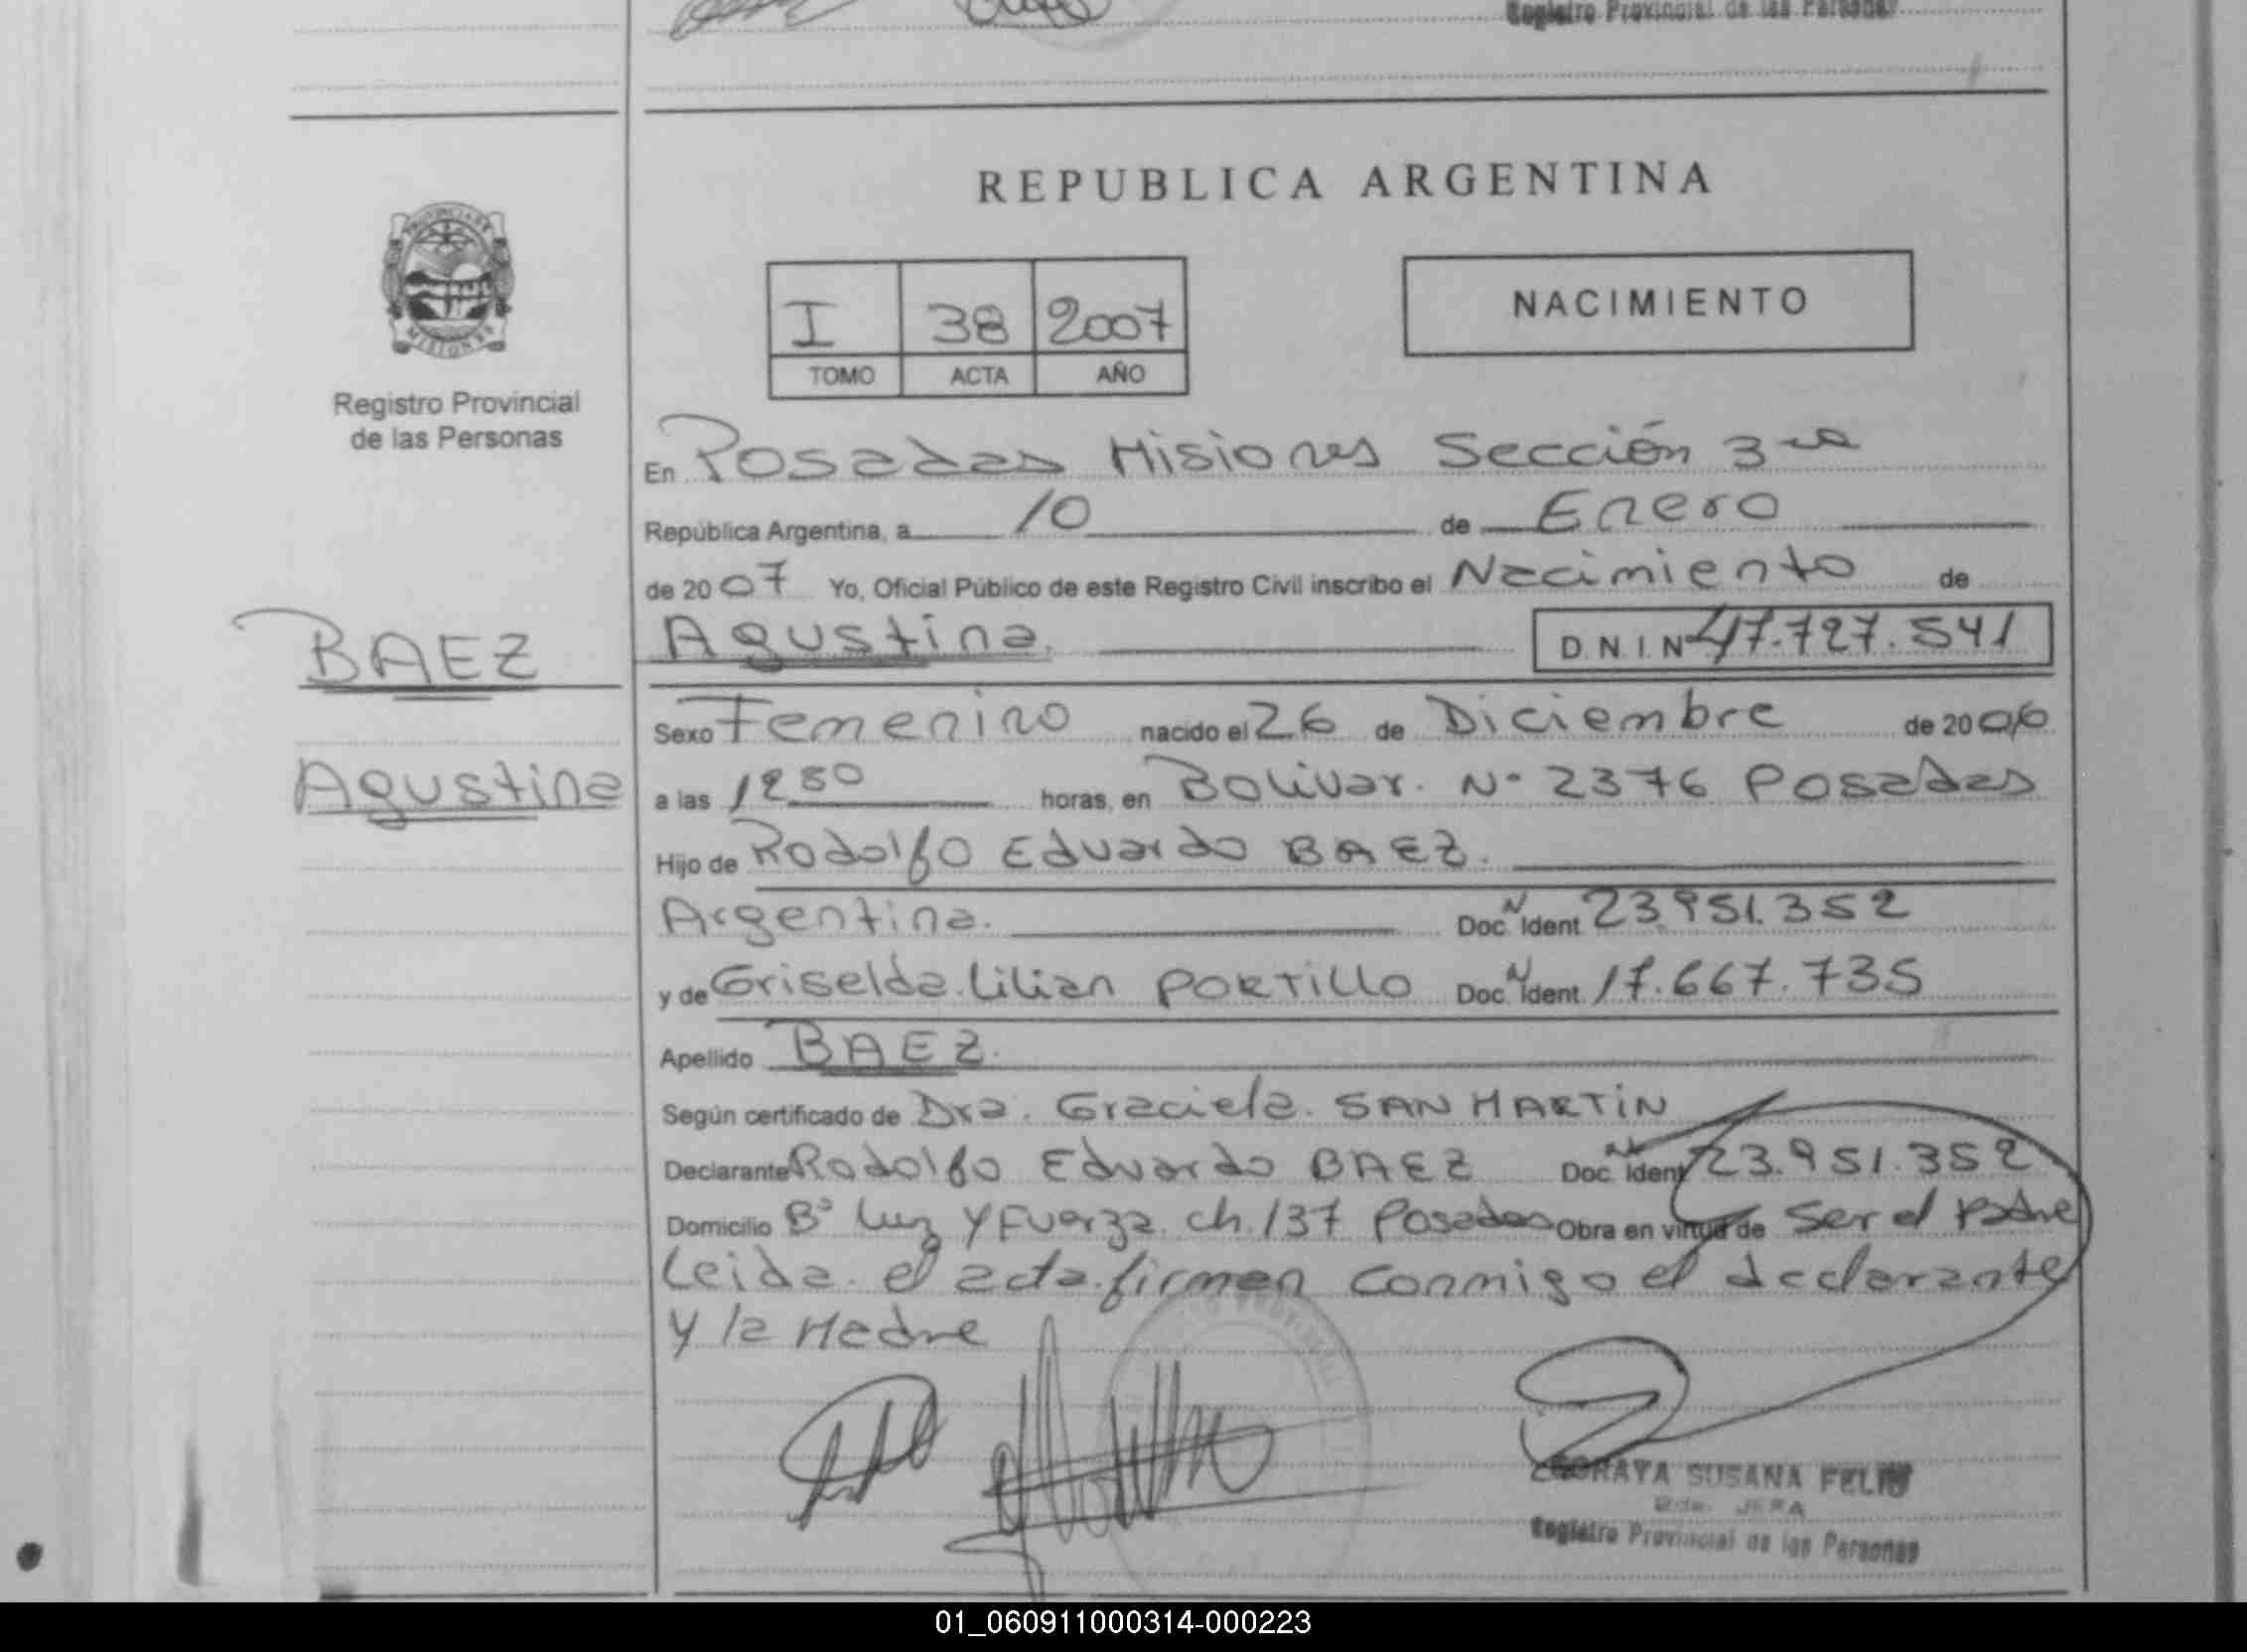 Registro Provincial de las Personas
REPUBLICA ARGENTINA
PROVINCIA DE
MISIONES
Registro Provincial
de las Personas
I 38 2007
TOMO ACTA AÑO
NACIMIENTO
En Posadas Misiones Sección 3ra
República Argentina, a 10 de Enero
de 2007 Yo, Oficial Público de este Registro Civil inscribo el Nacimiento de
BAEZ
Agustina. D.N.I. Nº 47.727.541
Sexo Femenino nacido el 26 de Diciembre de 2006
Agustina
a las 1250 horas, en Bolivar. Nº 2376 Posadas
Hijo de Rodolfo Eduardo BAEZ.
Argentina. Doc. N Ident 23.951.352
y de Griselda Lilian PORTILLO Doc. N Ident 17.667.735
Apellido BAEZ.
Según certificado de Dra. Graciela. SAN MARTIN
Declarante Rodolfo Eduardo BAEZ Doc. N Ident 23.951.352
Domicilio Bº Luz y Fuerza ch. 137 Posadas Obra en virtud de Ser el Padre
Leida el acta firman conmigo el declarante
y la Madre
SUSANA FELIU
Registro Provincial de las Personas
01_060911000314-000223